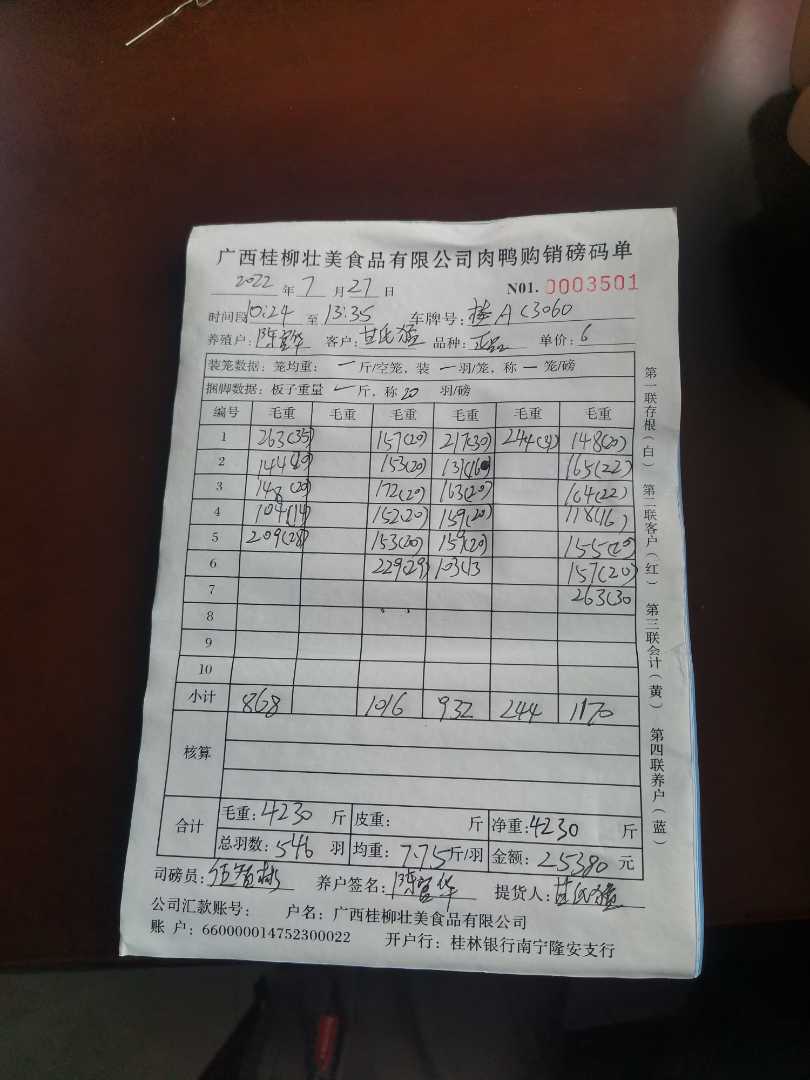 广西桂柳壮美食品有限公司肉鸭购销磅码单
2022 年 7 月 27 日 N01. 0003501
时间段 10:24 至 13:35 车牌号: 桂A C3060
养殖户: 陈富华 客户: 甘氏猛 品种: 正品 单价: 6
装笼数据: 笼均重: 一 斤/空笼, 装 一 羽/笼, 称 一 笼/磅
捆脚数据: 板子重量 一 斤, 称 20 羽/磅
编号 毛重 毛重 毛重 毛重 毛重 毛重
1 263(35) 157(20) 217(30) 244(3 148(20)
2 144( 153(20) 131(16 165(22)
3 148(20) 172(20) 163(20) 164(22)
4 104(14 152(20) 159(20) 118(16)
5 209(28) 153(20) 159(20) 155(20)
6 229(29) 103(13 157(20)
7 263(30
8
9
10
小计 868 1016 932 244 1170
核算
合计
毛重: 4230 斤 皮重: 斤 净重: 4230 斤
总羽数: 546 羽 均重: 7.75 斤/羽 金额: 25380 元
司磅员: 养户签名: 陈富华 提货人: 甘氏猛
公司汇款账号: 户名: 广西桂柳壮美食品有限公司
账 户: 660000014752300022 开户行: 桂林银行南宁隆安支行
第一联存根(白) 第二联客户(红) 第三联会计(黄) 第四联养户(蓝)